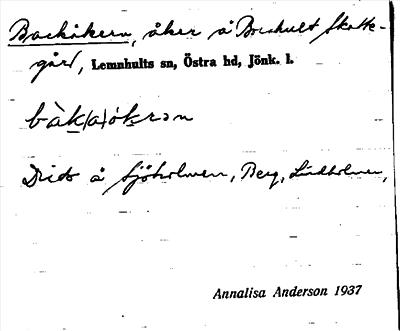 Backåkern, åker å Boshult skatte-
gård, Lemnhults sn, Östra hd, Jönk. l.
bàk(a)ókrən
Dito å Sjöholmen, Berg, Lindholmen,
Annalisa Anderson 1937